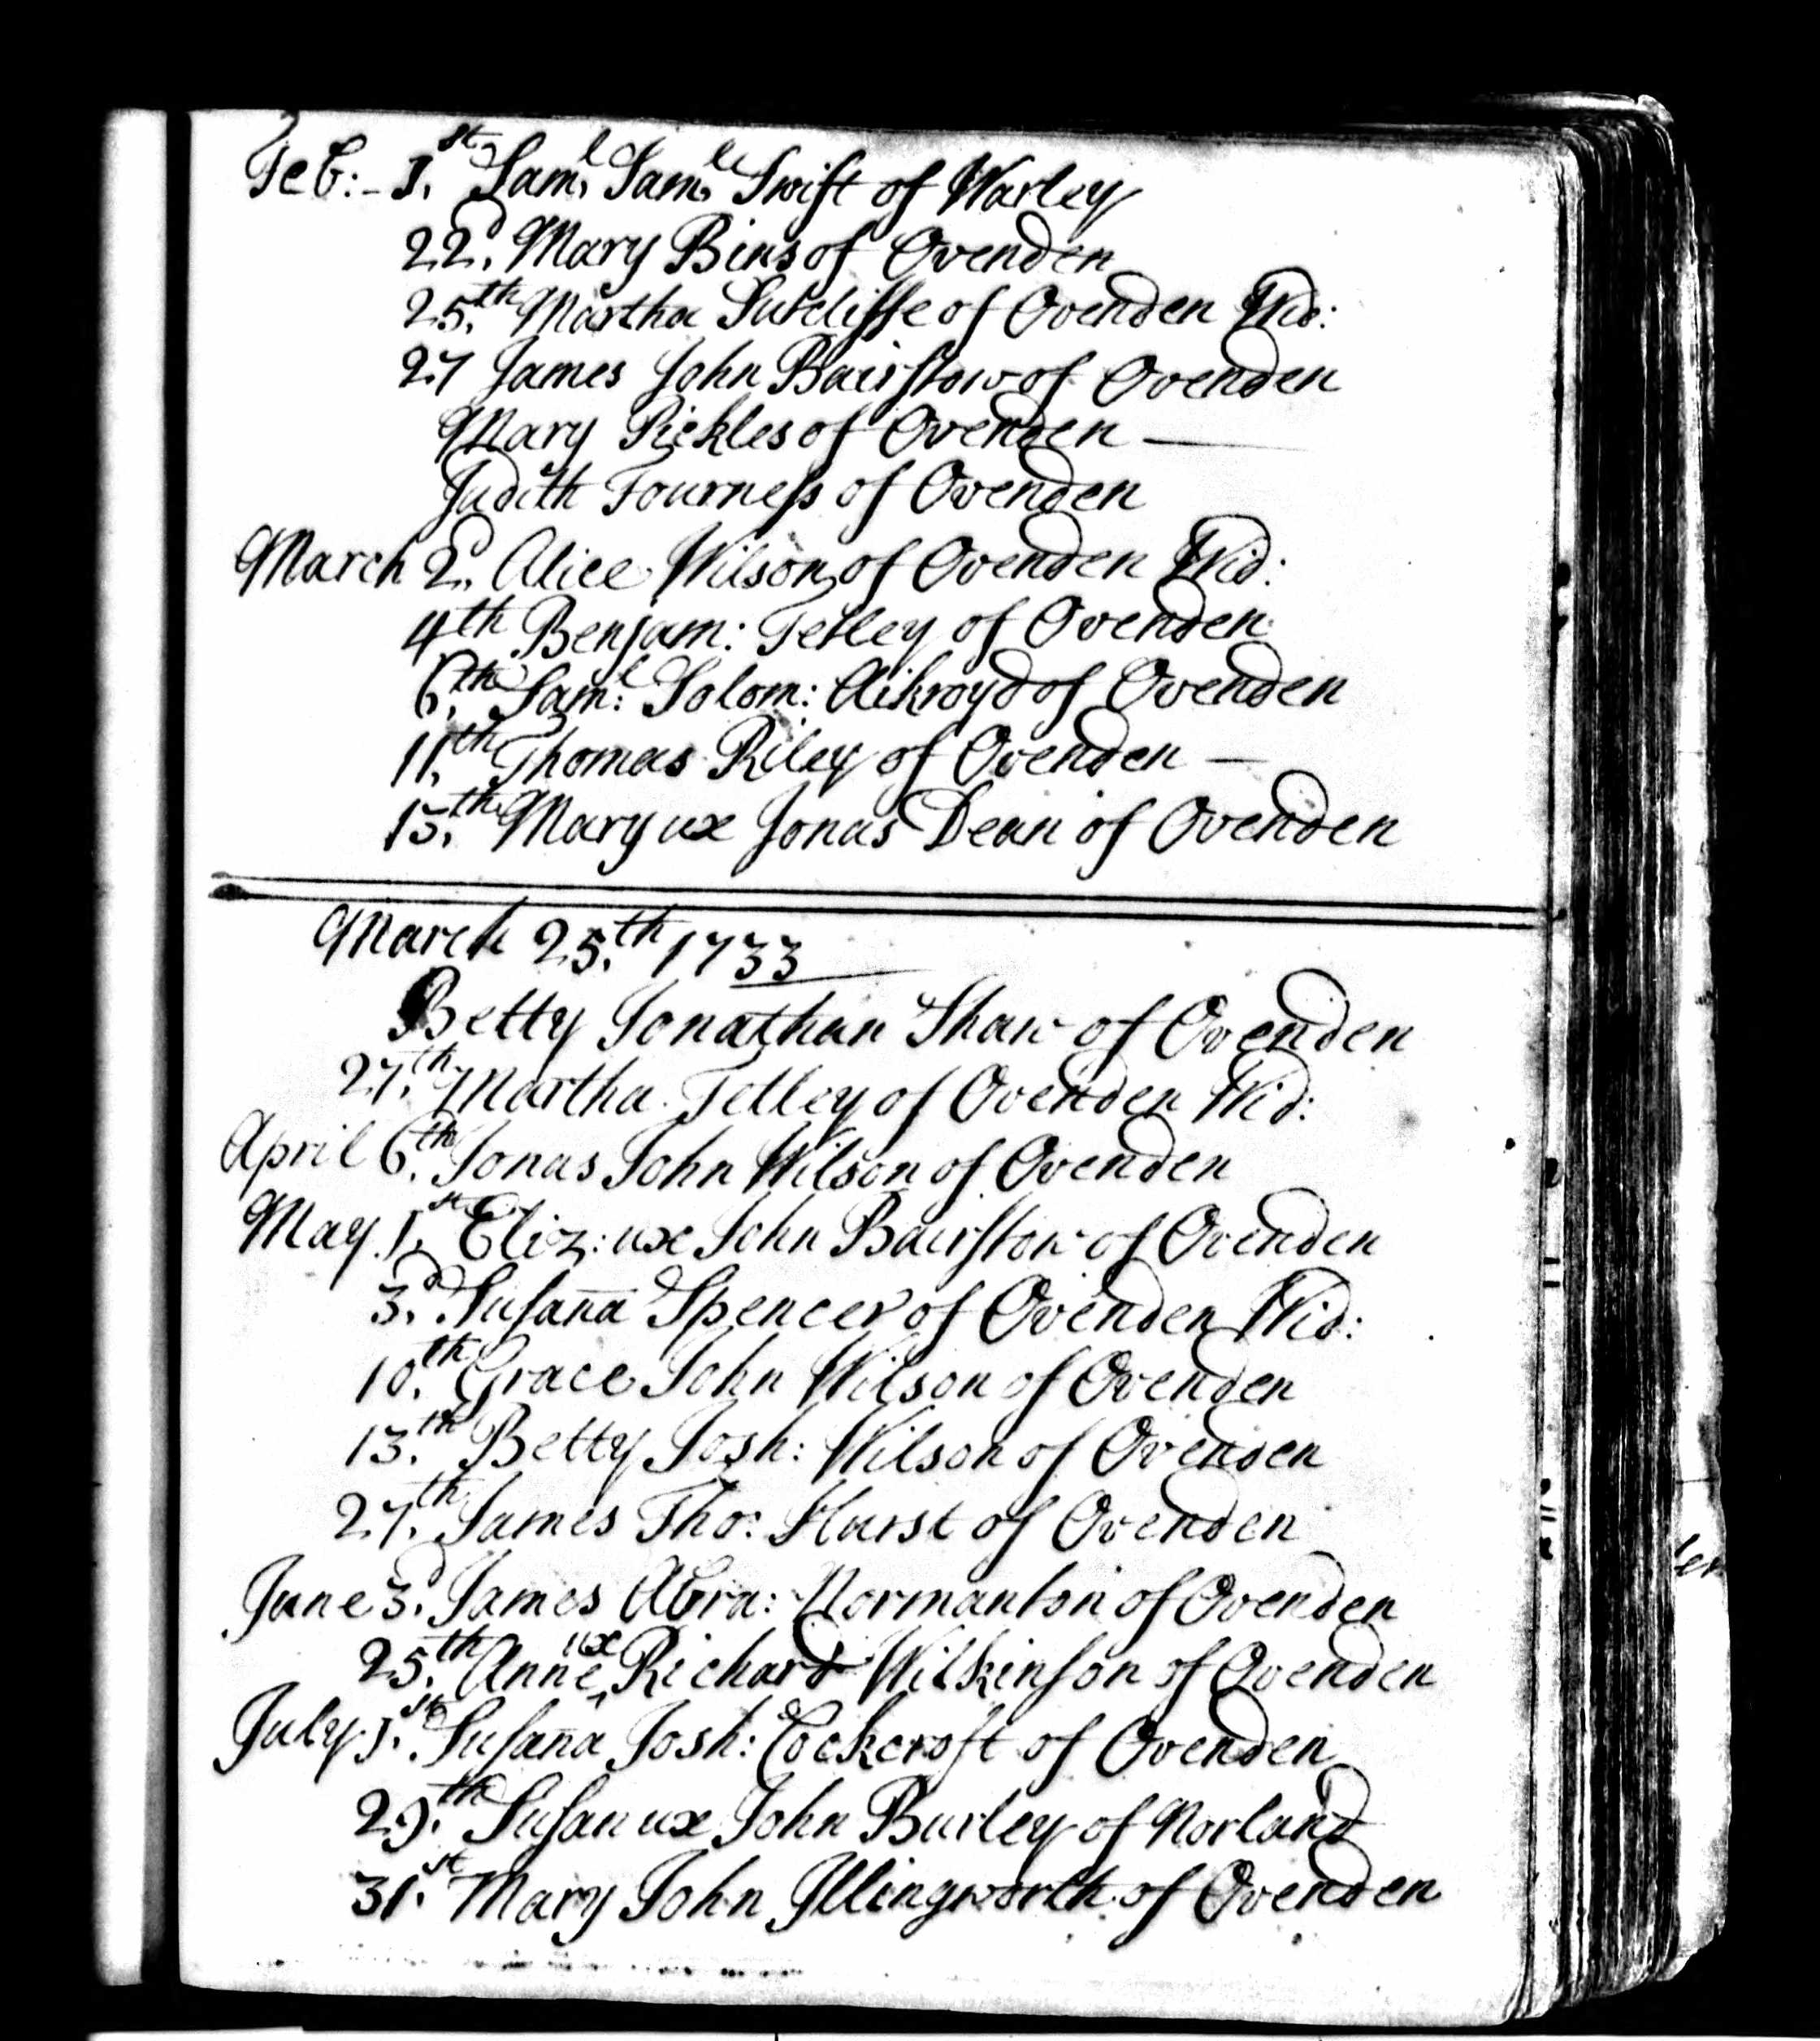 Feb: - 1.st Sam.l Sam.le Swift of Warley
22.d Mary Bins of Ovenden
25.th Martha Sutcliffe of Ovenden Wid:
27 James John Bairstow of Ovenden
Mary Pickles of Ovenden —
Judith Fourness of Ovenden
March 2.d Alice Wilson of Ovenden Wid:
4th Benjam: Tetley of Ovenden
6.th Sam:l Solom: Aikroyd of Ovenden
11.th Thomas Riley of Ovenden —
15.th Mary ux Jonas Dean of Ovenden
March 25.th 1733
Betty Jonathan Shaw of Ovenden
27.th Martha Tetley of Ovenden Wid:
April 6.th Jonas John Wilson of Ovenden
May 1.st Eliz: ux John Bairstow of Ovenden
3.d Susan̄a Spencer of Ovenden Wid:
10.th Grace John Wilson of Ovenden
13.th Betty Josh: Wilson of Ovenden
27.th James Tho: Hurst of Ovenden
June 3.d James Abra: Normanton of Ovenden
25.th Anne ux Richard Wilkinson of Ovenden
July 1.st Susan̄a Josh: Cockcroft of Ovenden
29.th Susan ux John Burley of Norland
31.st Mary John Illingworth of Ovenden